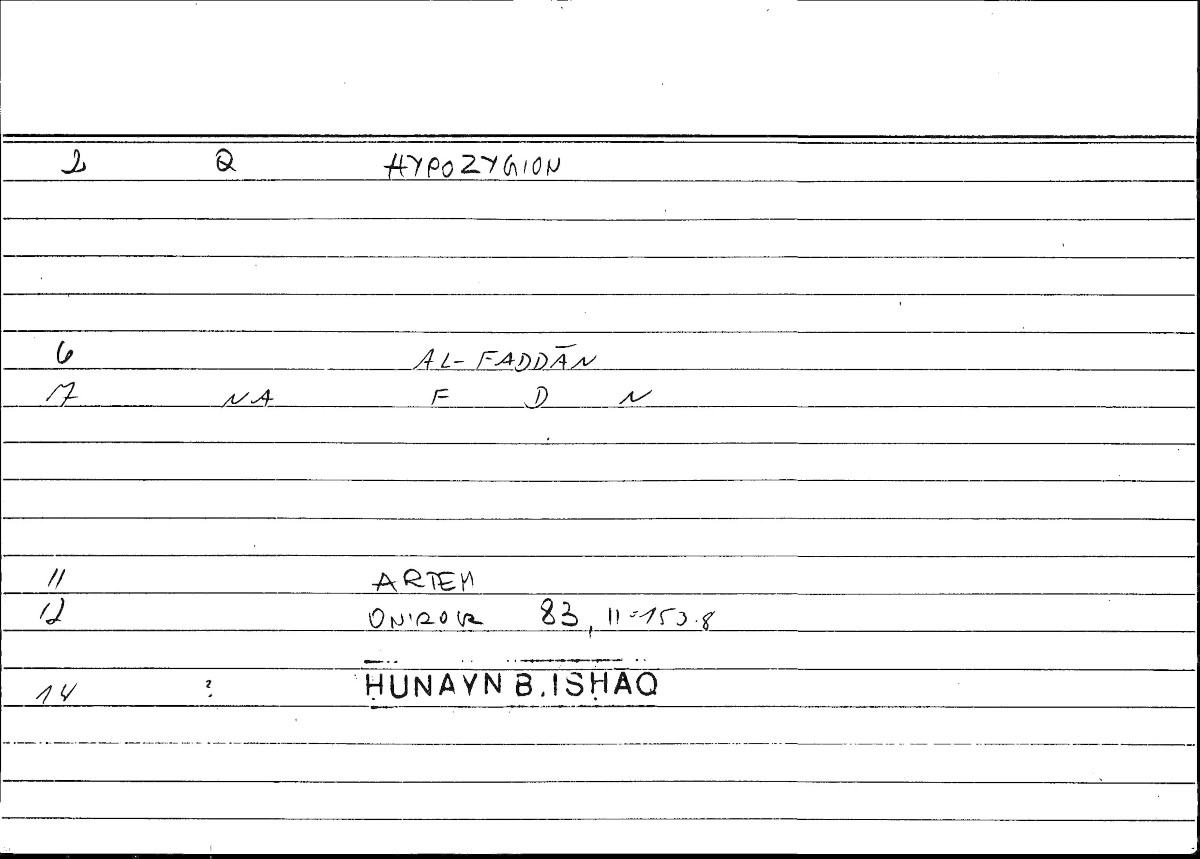 2 Q HYPOZYGION
6 AL-FADDĀN
7 NA F D N
11 ARTEM
12 ONIROCR 83, 11=153.8
14 ? ḤUNAYN B. ISḤĀQ